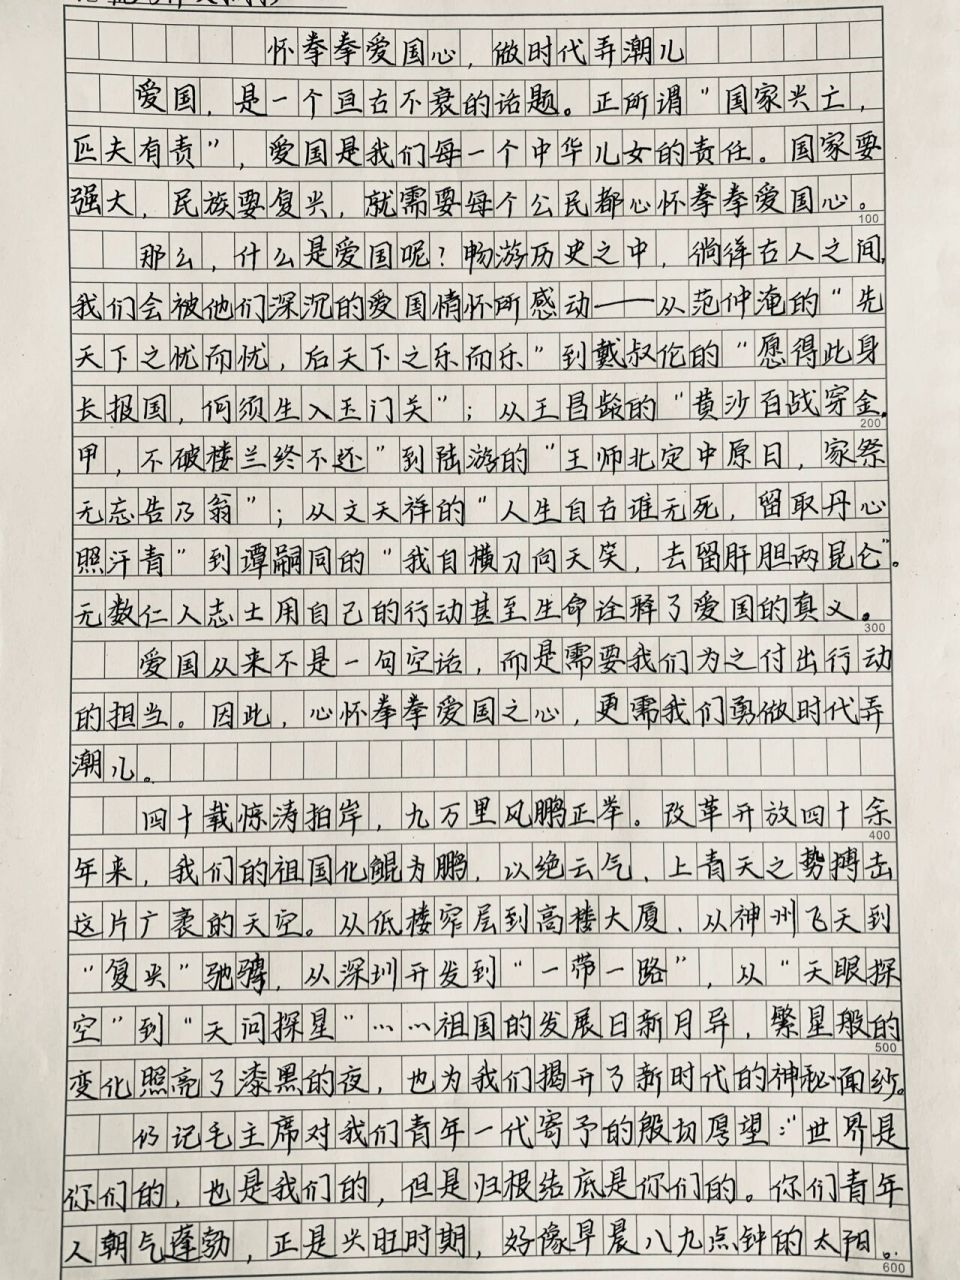 怀拳拳爱国心，做时代弄潮儿
爱国，是一个亘古不衰的话题。正所谓“国家兴亡，
匹夫有责”，爱国是我们每一个中华儿女的责任。国家要
强大，民族要复兴，就需要每个公民都心怀拳拳爱国心。
100
那么，什么是爱国呢？畅游历史之中，徜徉古人之间，
我们会被他们深沉的爱国情怀所感动——从范仲淹的“先
天下之忧而忧，后天下之乐而乐”到戴叔伦的“愿得此身
长报国，何须生入玉门关”；从王昌龄的“黄沙百战穿金
200
甲，不破楼兰终不还”到陆游的“王师北定中原日，家祭
无忘告乃翁”；从文天祥的“人生自古谁无死，留取丹心
照汗青”到谭嗣同的“我自横刀向天笑，去留肝胆两昆仑”。
无数仁人志士用自己的行动甚至生命诠释了爱国的真义。
300
爱国从来不是一句空话，而是需要我们为之付出行动
的担当。因此，心怀拳拳爱国之心，更需我们勇做时代弄
潮儿。
四十载惊涛拍岸，九万里风鹏正举。改革开放四十余
400
年来，我们的祖国化鲲为鹏，以绝云气，上青天之势搏击
这片广袤的天空。从低楼窄层到高楼大厦，从神州飞天到
“复兴”驰骋，从深圳开发到“一带一路”，从“天眼探
空”到“天问探星”……祖国的发展日新月异，繁星般的
500
变化照亮了漆黑的夜，也为我们揭开了新时代的神秘面纱。
仍记毛主席对我们青年一代寄予的殷切厚望：“世界是
你们的，也是我们的，但是归根结底是你们的。你们青年
人朝气蓬勃，正是兴旺时期，好像早晨八九点钟的太阳。
600